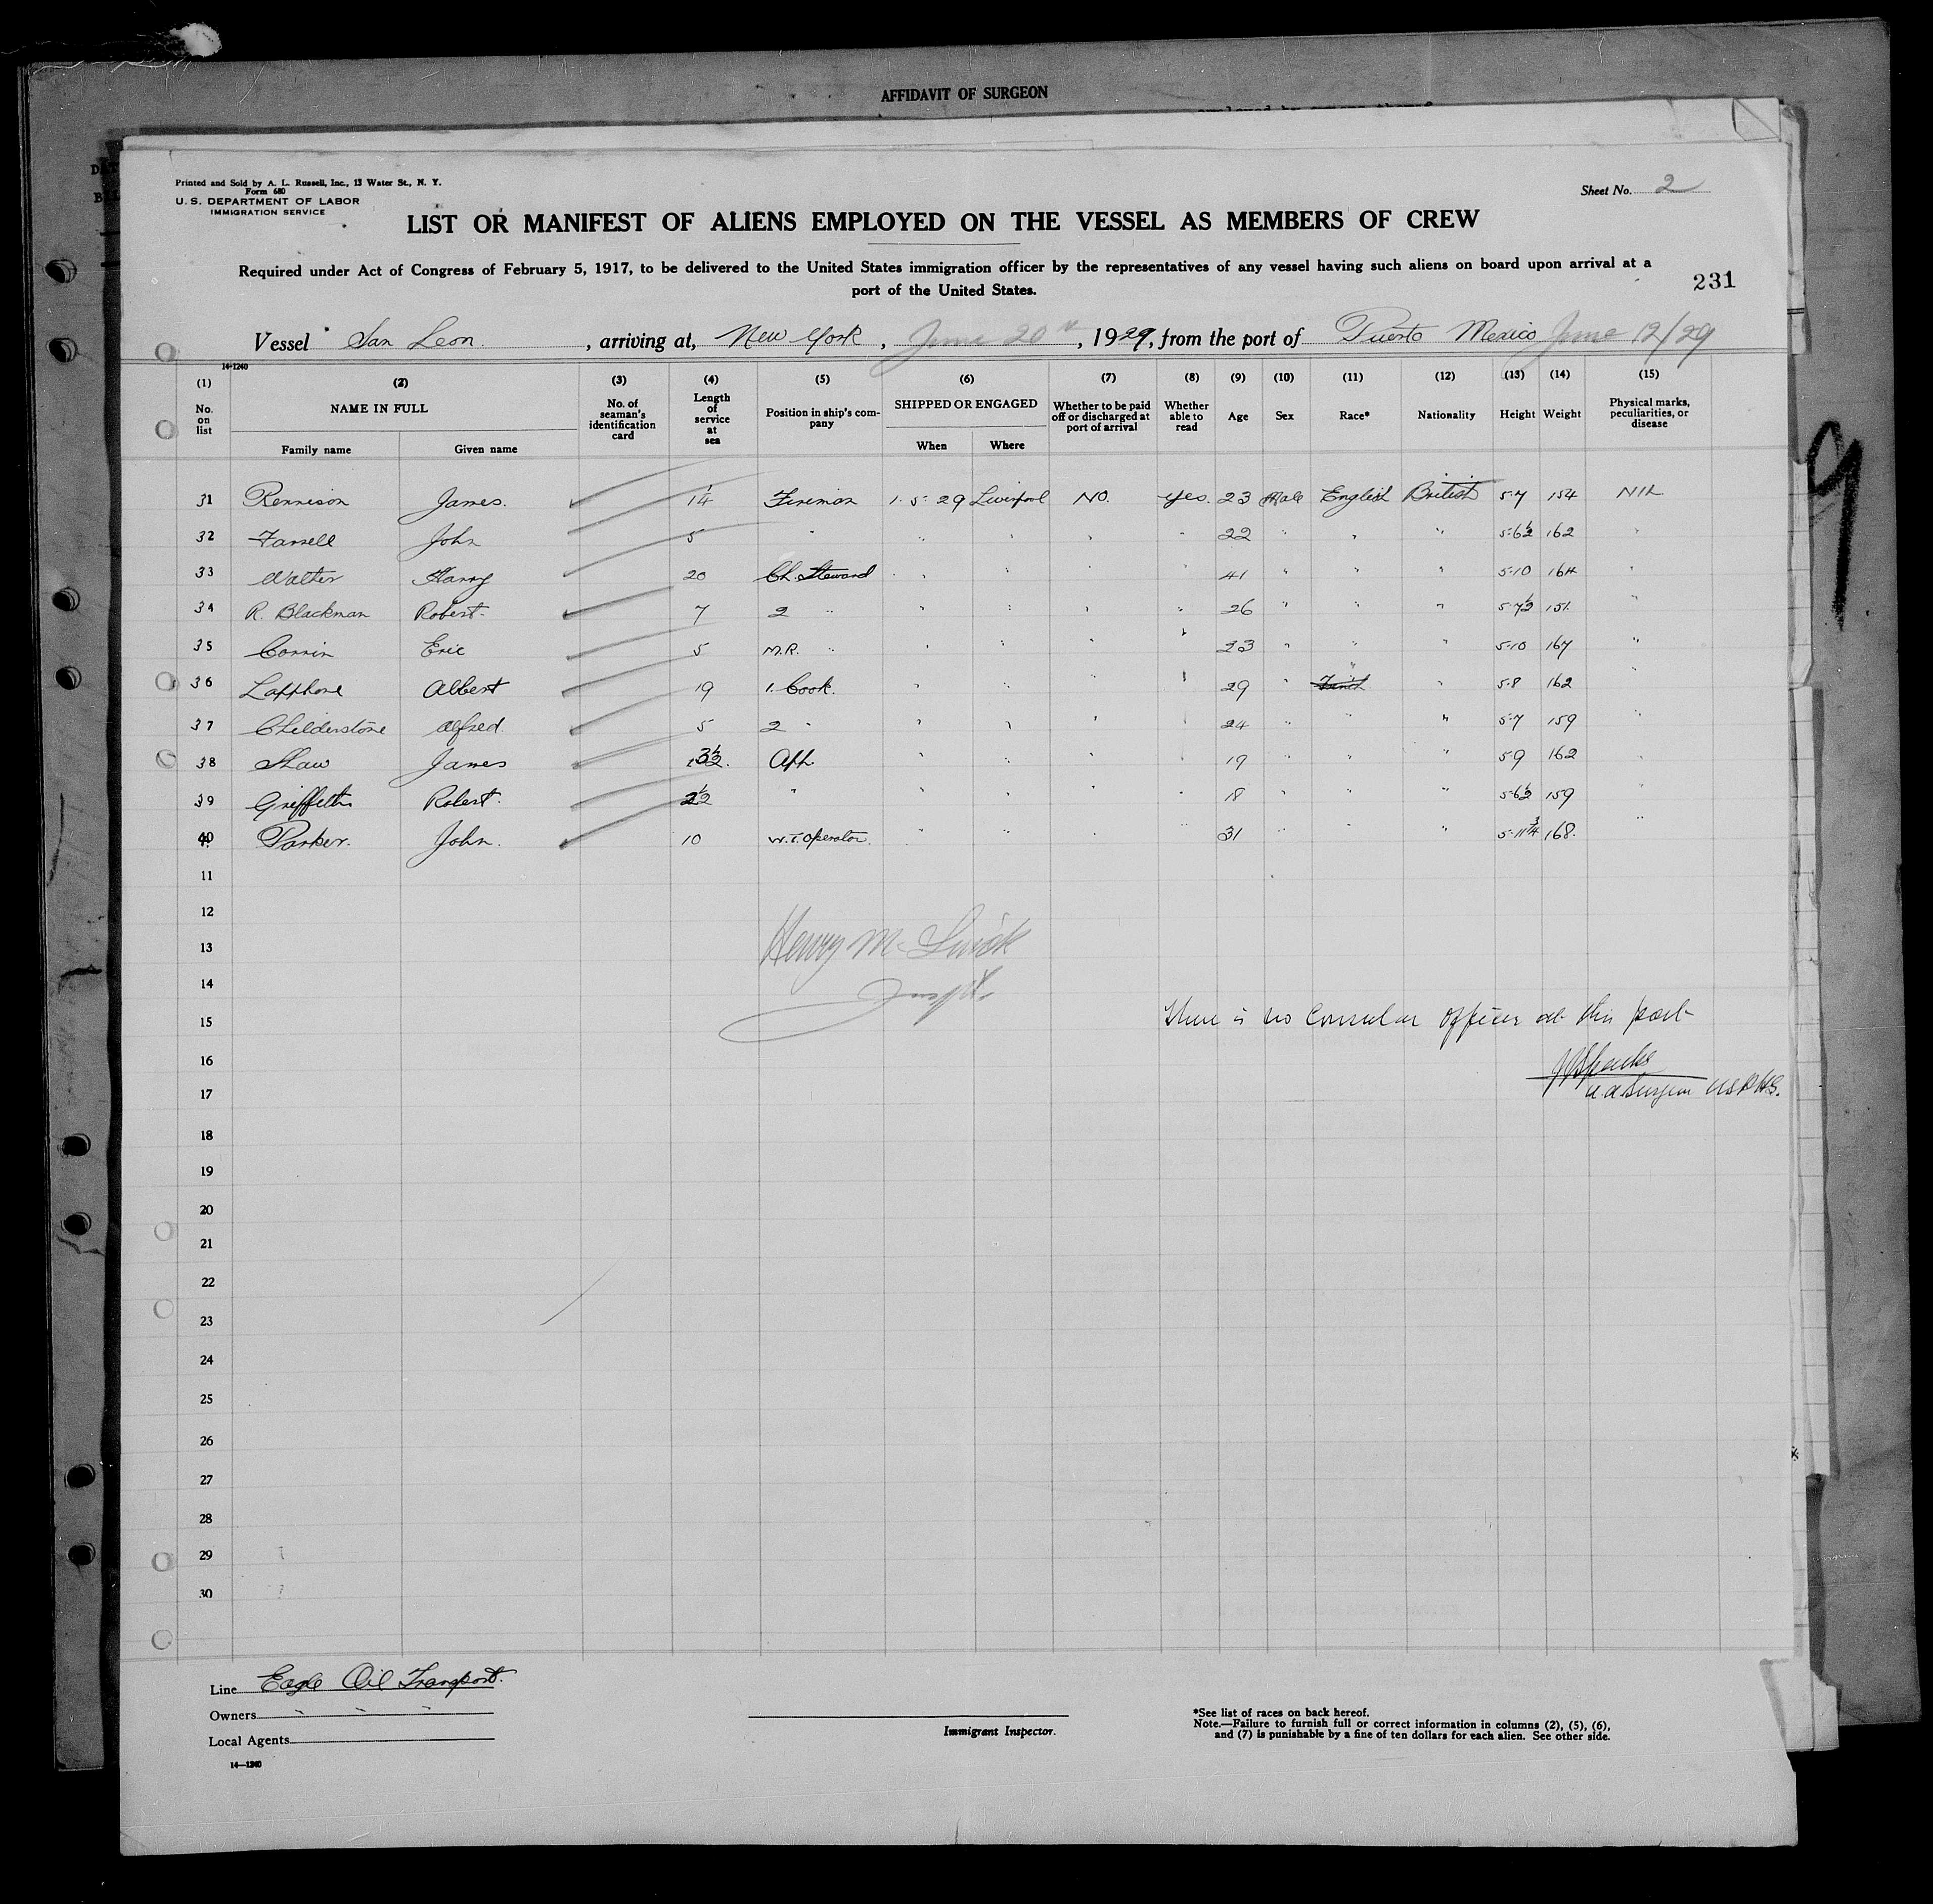 AFFIDAVIT OF SURGEON
Printed and Sold by A. L. Russell, Inc., 13 Water St., N. Y.
Form 680
U. S. DEPARTMENT OF LABOR
IMMIGRATION SERVICE
Sheet No. 2
LIST OR MANIFEST OF ALIENS EMPLOYED ON THE VESSEL AS MEMBERS OF CREW
Required under Act of Congress of February 5, 1917, to be delivered to the United States immigration officer by the representatives of any vessel having such aliens on board upon arrival at a
port of the United States.
231
Vessel San Leon, arriving at, New York, June 20th, 1929, from the port of Puerto Mexico June 12/29
14-1240
(1) (2) (3) (4) (5) (6) (7) (8) (9) (10) (11) (12) (13) (14) (15)
No. on list NAME IN FULL Family name Given name No. of seaman's identification card Length of service at sea Position in ship's company SHIPPED OR ENGAGED When Where Whether to be paid off or discharged at port of arrival Whether able to read Age Sex Race* Nationality Height Weight Physical marks, peculiarities, or disease
31 Rennison James. 1¼ Fireman 1. 5. 29 Liverpool NO. Yes. 23 Male English British 5-7 154 NIL
32 Farrell John 5 " " " " " 22 " " " 5-6½ 162 "
33 Walter Harry 20 Ch. Steward " " " " 41 " " " 5-10 164 "
34 R. Blackman Robert. 7 2 " " " " " 26 " " " 5-7½ 151. "
35 Corrin Eric 5 M.R. " " " " " 23 " " " 5-10 167 "
36 Lapthone Albert 19 1. Cook. " " " " 29 " " " 5-8 162 "
37 Childerstone Alfred. 5 2 " " " " " 24 " " " 5-7 159 "
38 Shaw James 3½. App. " " " " 19 " " " 5-9 162 "
39 Griffiths Robert. 2½ " " " " " 18 " " " 5-6½ 159 "
40 Parker. John. 10 W.T. Operator. " " " " 31 " " " 5-11¾ 168. "
11
12
13
Henry M. 
14
15
There is no Consular Officer at this port
16
17
Surgeon USPHS.
18
19
20
21
22
23
24
25
26
27
28
29
30
Line Eagle Oil Transport.
Owners " " "
Local Agents
14—1240
Immigrant Inspector.
*See list of races on back hereof.
Note.—Failure to furnish full or correct information in columns (2), (5), (6),
and (7) is punishable by a fine of ten dollars for each alien. See other side.
9